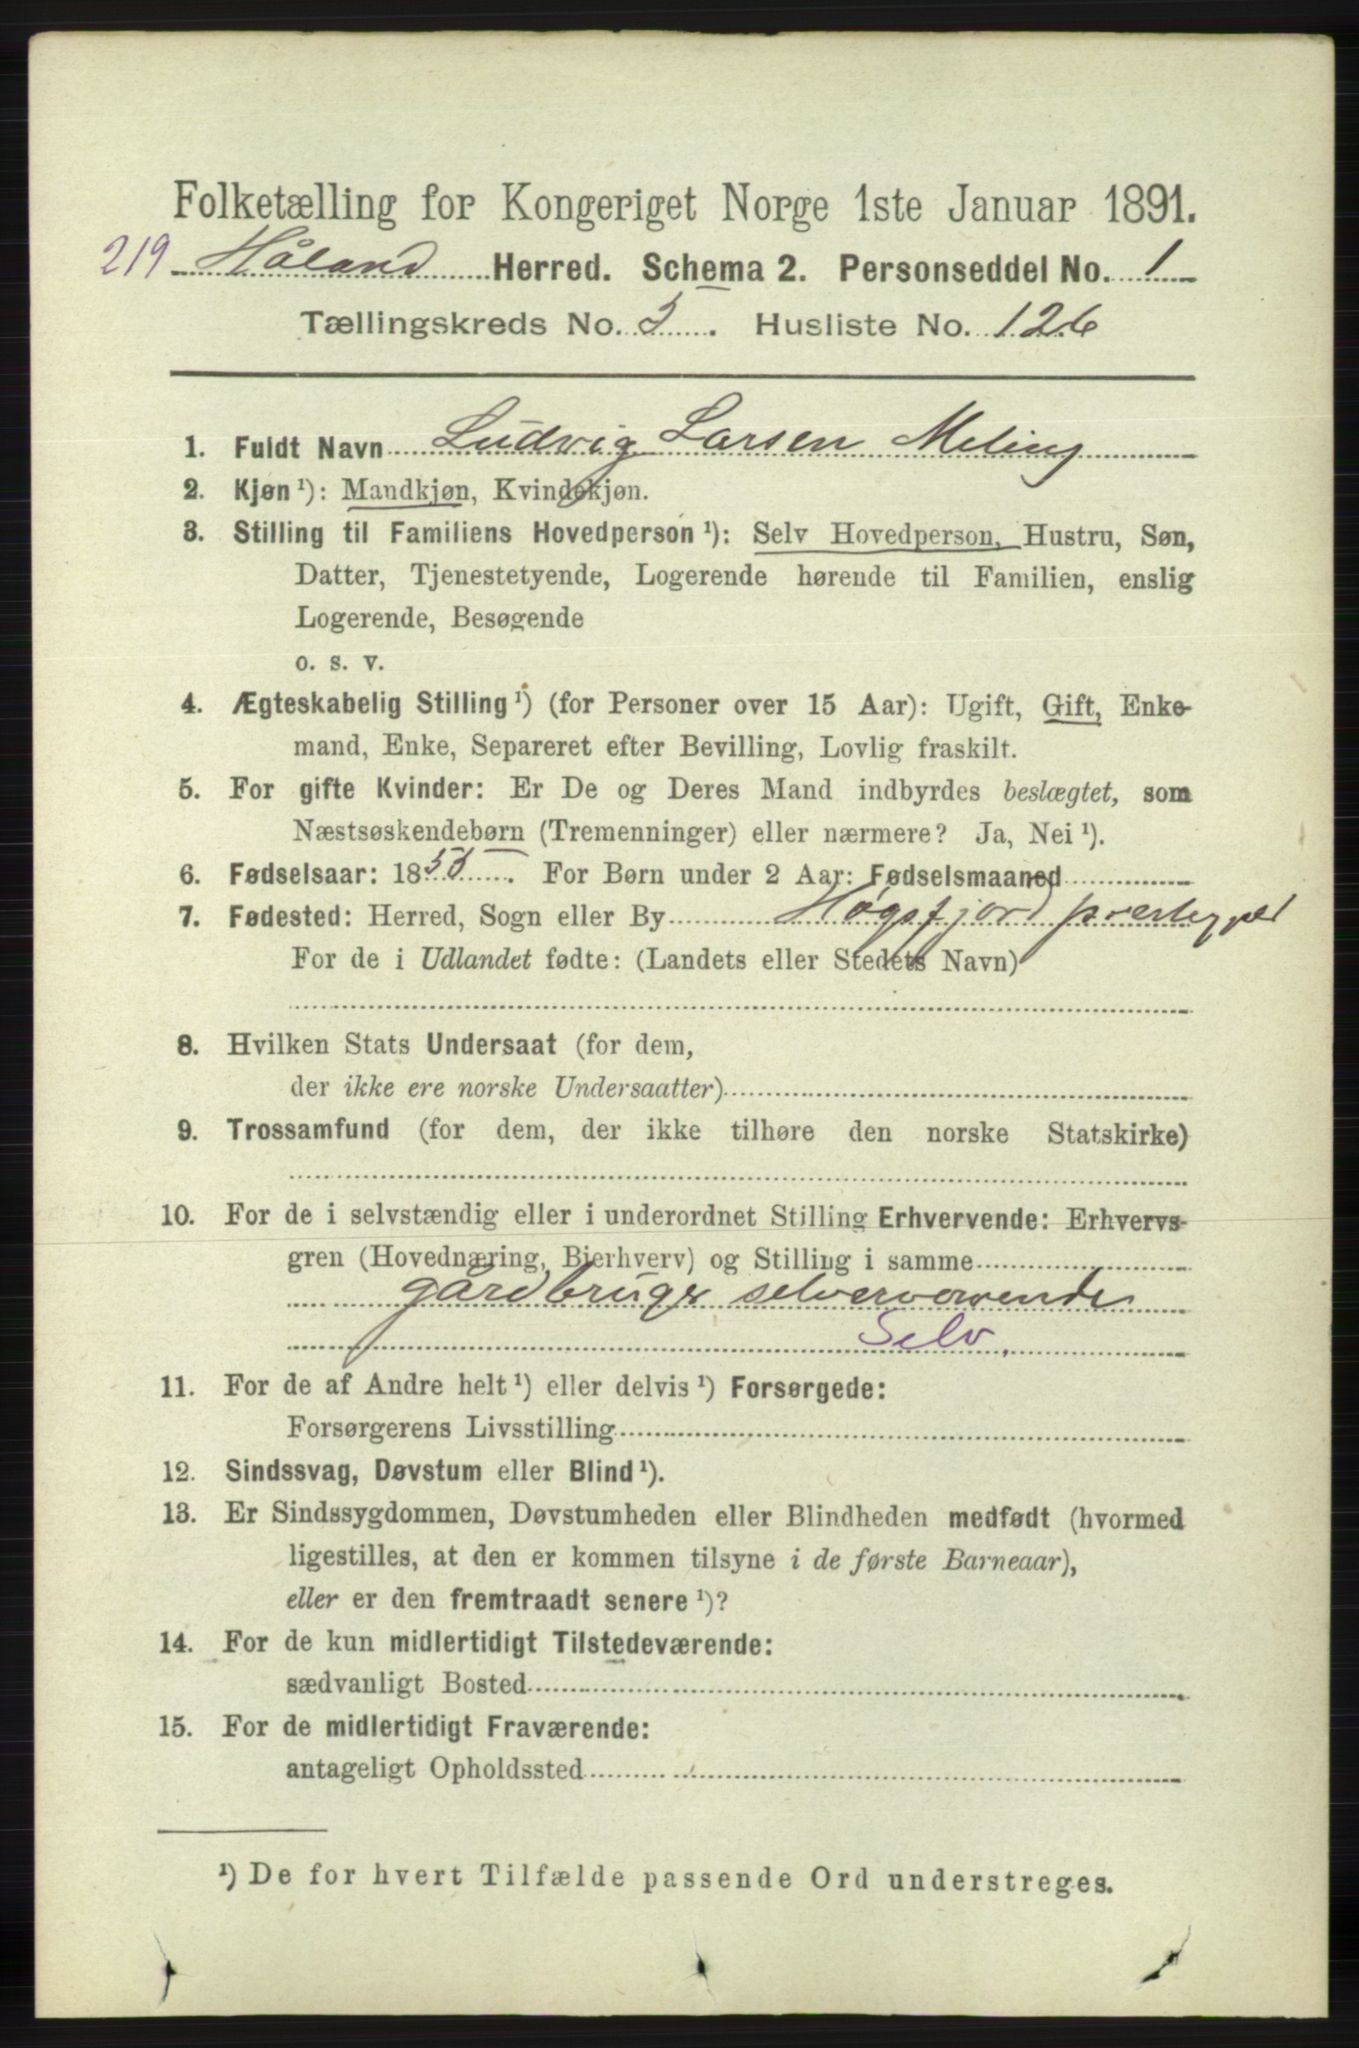 Folketælling for Kongeriget Norge 1ste Januar 1891.
219 Håland Herred. Schema 2. Personseddel No. 1
Tællingskreds No. 5. Husliste No. 126
1. Fuldt Navn Ludvig Larsen Meling
2. Kjøn ¹): Mandkjøn, Kvindekjøn.
3. Stilling til Familiens Hovedperson ¹): Selv Hovedperson, Hustru, Søn,
Datter, Tjenestetyende, Logerende hørende til Familien, enslig
Logerende, Besøgende
o. s. v.
4. Ægteskabelig Stilling ¹) (for Personer over 15 Aar): Ugift, Gift, Enke-
mand, Enke, Separeret efter Bevilling, Lovlig fraskilt.
5. For gifte Kvinder: Er De og Deres Mand indbyrdes beslægtet, som
Næstsøskendebørn (Tremenninger) eller nærmere? Ja, Nei ¹).
6. Fødselsaar: 1855. For Børn under 2 Aar: Fødselsmaaned
7. Fødested: Herred, Sogn eller By Høgsfjord
For de i Udlandet fødte: (Landets eller Stedets Navn)
8. Hvilken Stats Undersaat (for dem,
der ikke ere norske Undersaatter)
9. Trossamfund (for dem, der ikke tilhøre den norske Statskirke)
10. For de i selvstændig eller i underordnet Stilling Erhvervende: Erhvervs-
gren (Hovednæring, Bierhverv) og Stilling i samme
gårdbruger
Selv.
11. For de af Andre helt ¹) eller delvis ¹) Forsørgede:
Forsørgerens Livsstilling
12. Sindssvag, Døvstum eller Blind ¹).
13. Er Sindssygdommen, Døvstumheden eller Blindheden medfødt (hvormed
ligestilles, at den er kommen tilsyne i de første Barneaar),
eller er den fremtraadt senere ¹)?
14. For de kun midlertidigt Tilstedeværende:
sædvanligt Bosted
15. For de midlertidigt Fraværende:
antageligt Opholdssted
¹) De for hvert Tilfælde passende Ord understreges.